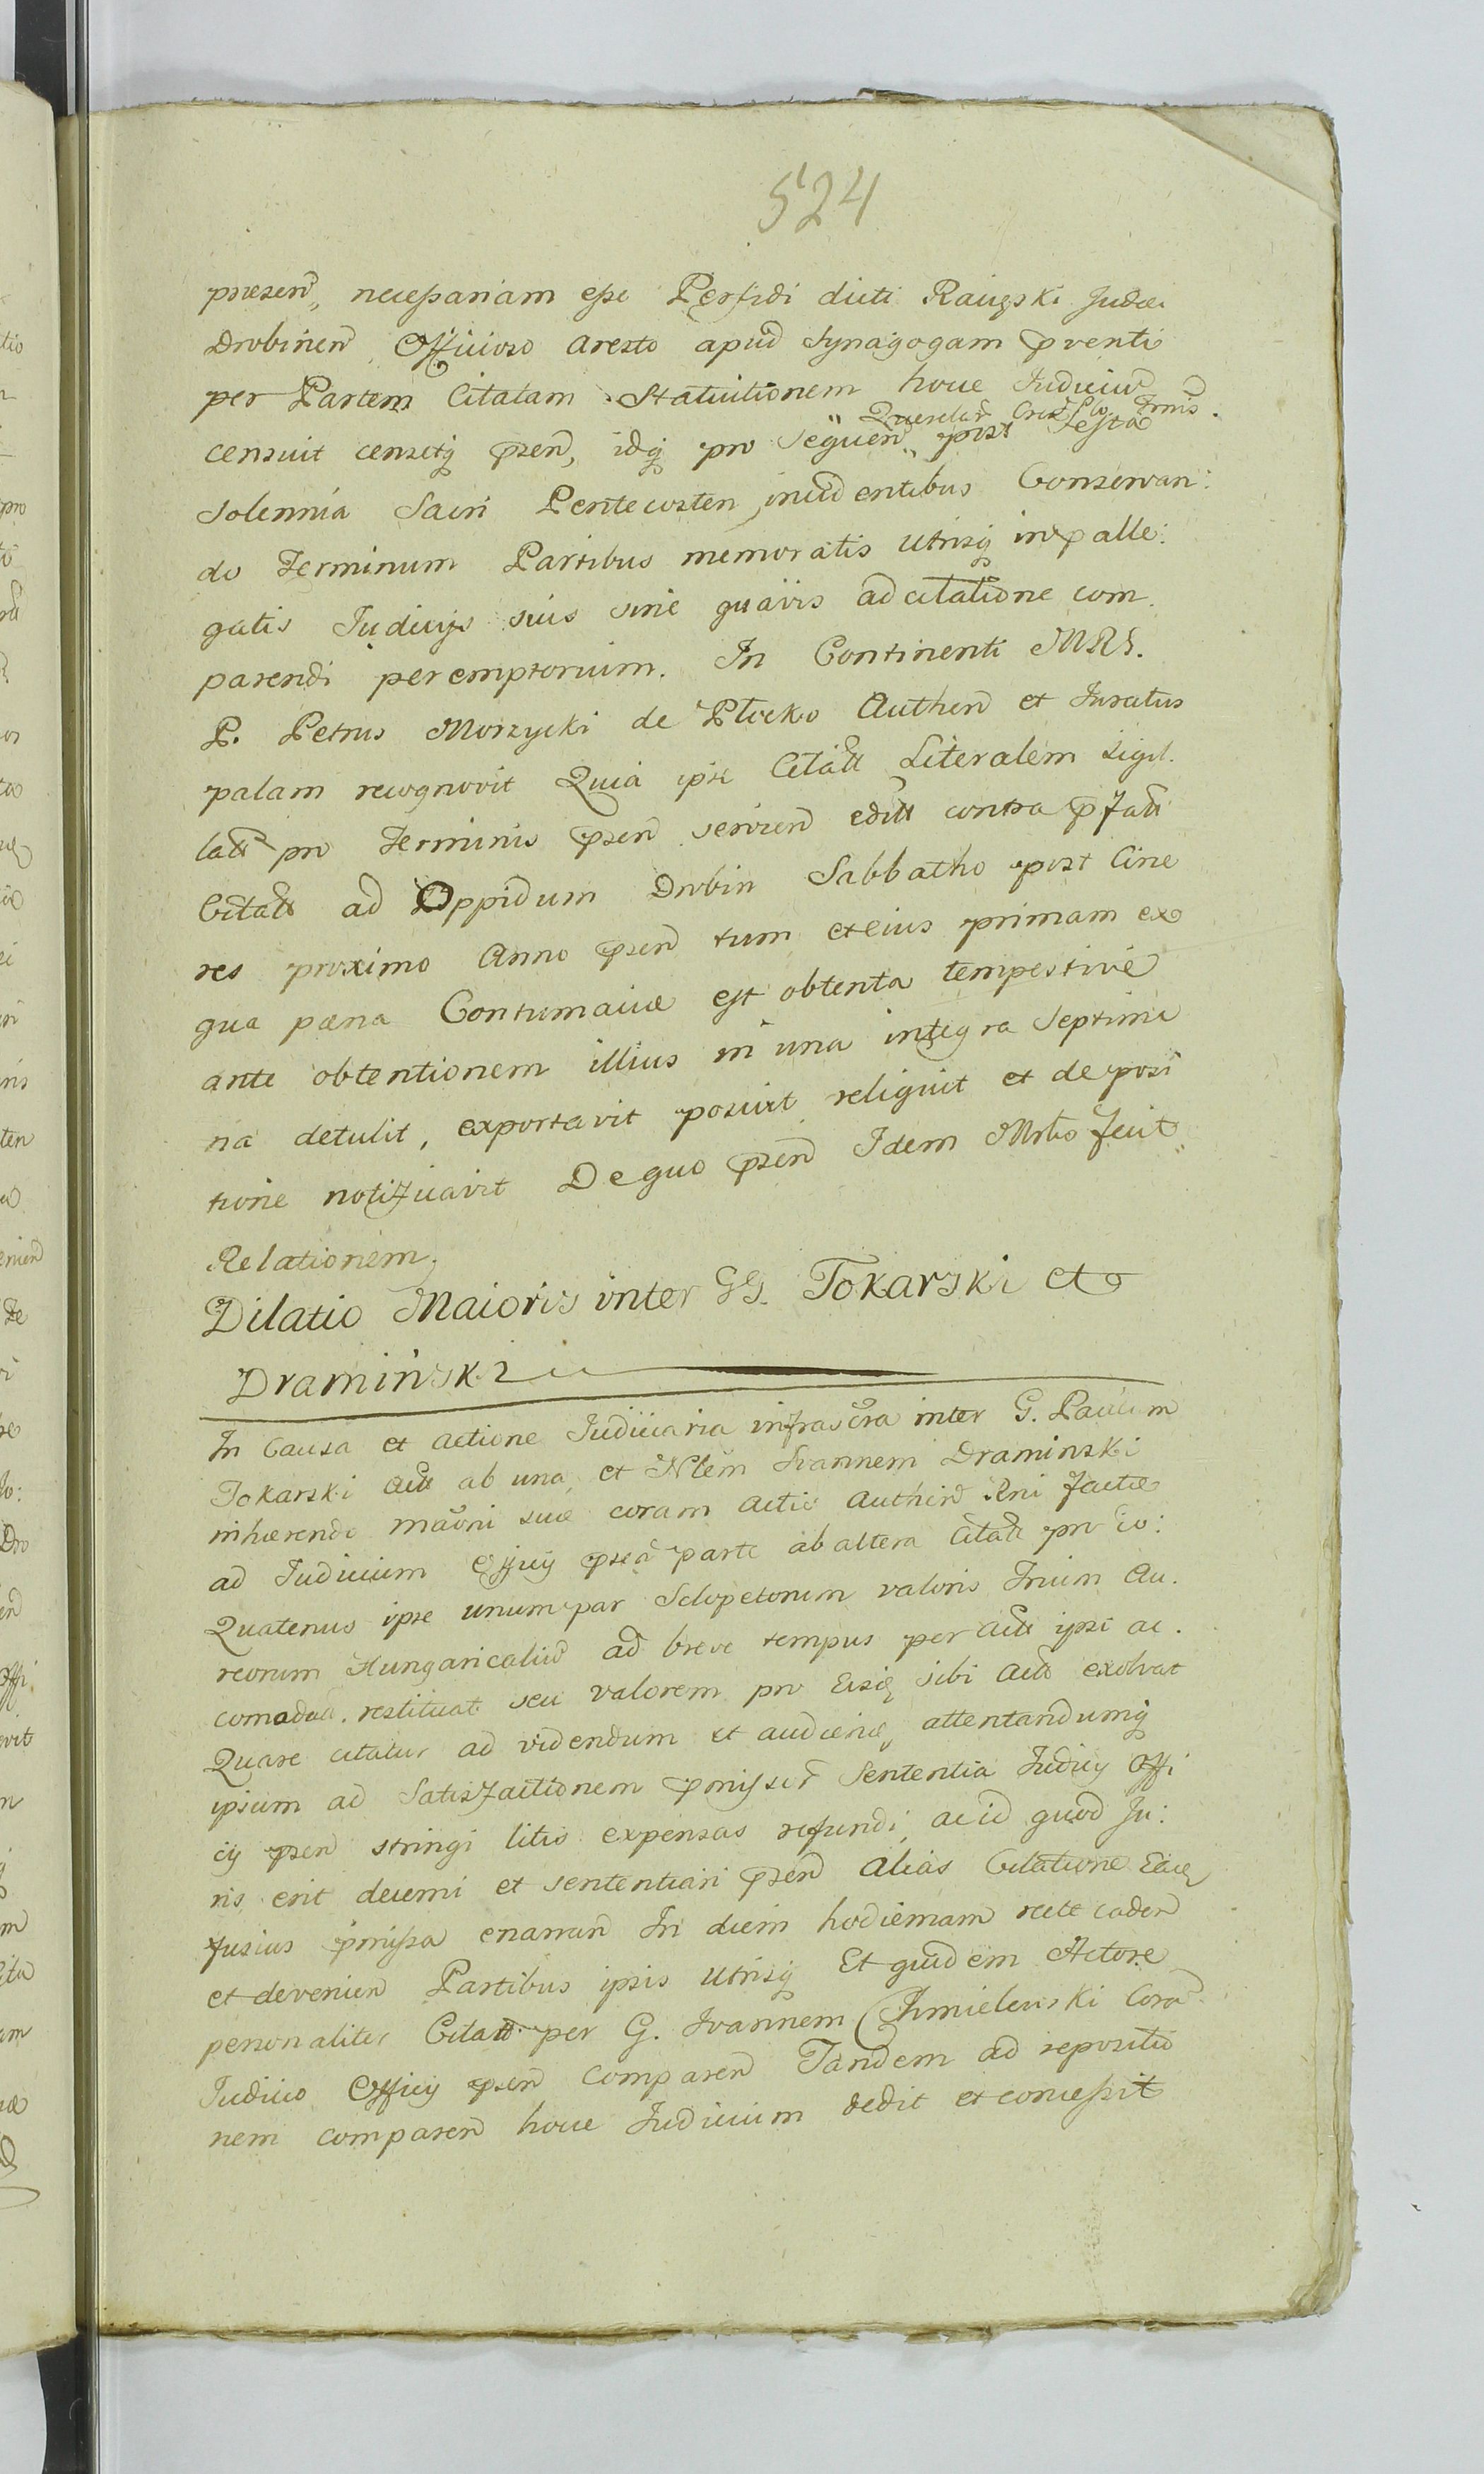 524
presen, necessariam esse Perfidi dicti Raiçski Judæi
Drobinen Officioso Aresto apud Synagogam pventi
per Partem Citatam Statuitionem hocce Judiciu
Querelar Tmis
censuit censetq psen, idq pro sequen post Festa
Solennia Sacri Pentecosten incidentibus Conservan:
do Terminum Partibus memoratis utrisq in palle:
gatis Judicijs suis sine quavis adcitatione com
parendi peremptorium. In Continenti MRS.
P. Petrus Morzycki de Płocko Authen et Juratus
palam recognovit Quia ipse Citatt Literalem sigil.
latt pro Terminis psen servien editt contra pfatt
Citatt ad Oppidum Drobin Sabbatho post Cine
res proximo Anno psen tum et eius primam ex
qua pæna Contumaciæ est obtenta tempestive
ante obtentionem illius in una integra Septima
na detulit, exportavit posuit reliquit et de posi
tione notificavit De quo psen Idem Mrlis fecit
Relationem.
Dilatio Maioris inter GG. Tokarski et
Dramiński
In Causa et actione Judiciaria infrascra inter G. Paulum
Tokarski Actt ab una, et Nlem Joannem Draminski
inhærendo maoni suæ coram Actis Authen Rni factæ
ad Judicium Officij psea parte ab altera Citatt pro eo:
Quatenus ipse unum par Sclopetorum valoris Trium Au.
reorum Hungaricaliu ad breve tempus per Actt ipsi ac.
comodata restituat seu valorem pro Eisq sibi Actt exolvat
Quare citatur ad videndum et audienq attentandumq
ipsum ad Satisfactionem pmissor Sententia Judicij Offi
cij psen stringi litis expensas refundi, ac id quod Ju:
ris erit decerni et sententiari psen alias Citatione Eaq
fusius pmissa enarran In diem hodiernam recte caden
et devenien Partibus ipsis utrisq Et quidem Actore
personaliter Citatt per G. Joannem Chmielewski Cora
Judicio Officij psen comparen Tandem ad repositio
nem comparen hocce Judicium dedit et concessit